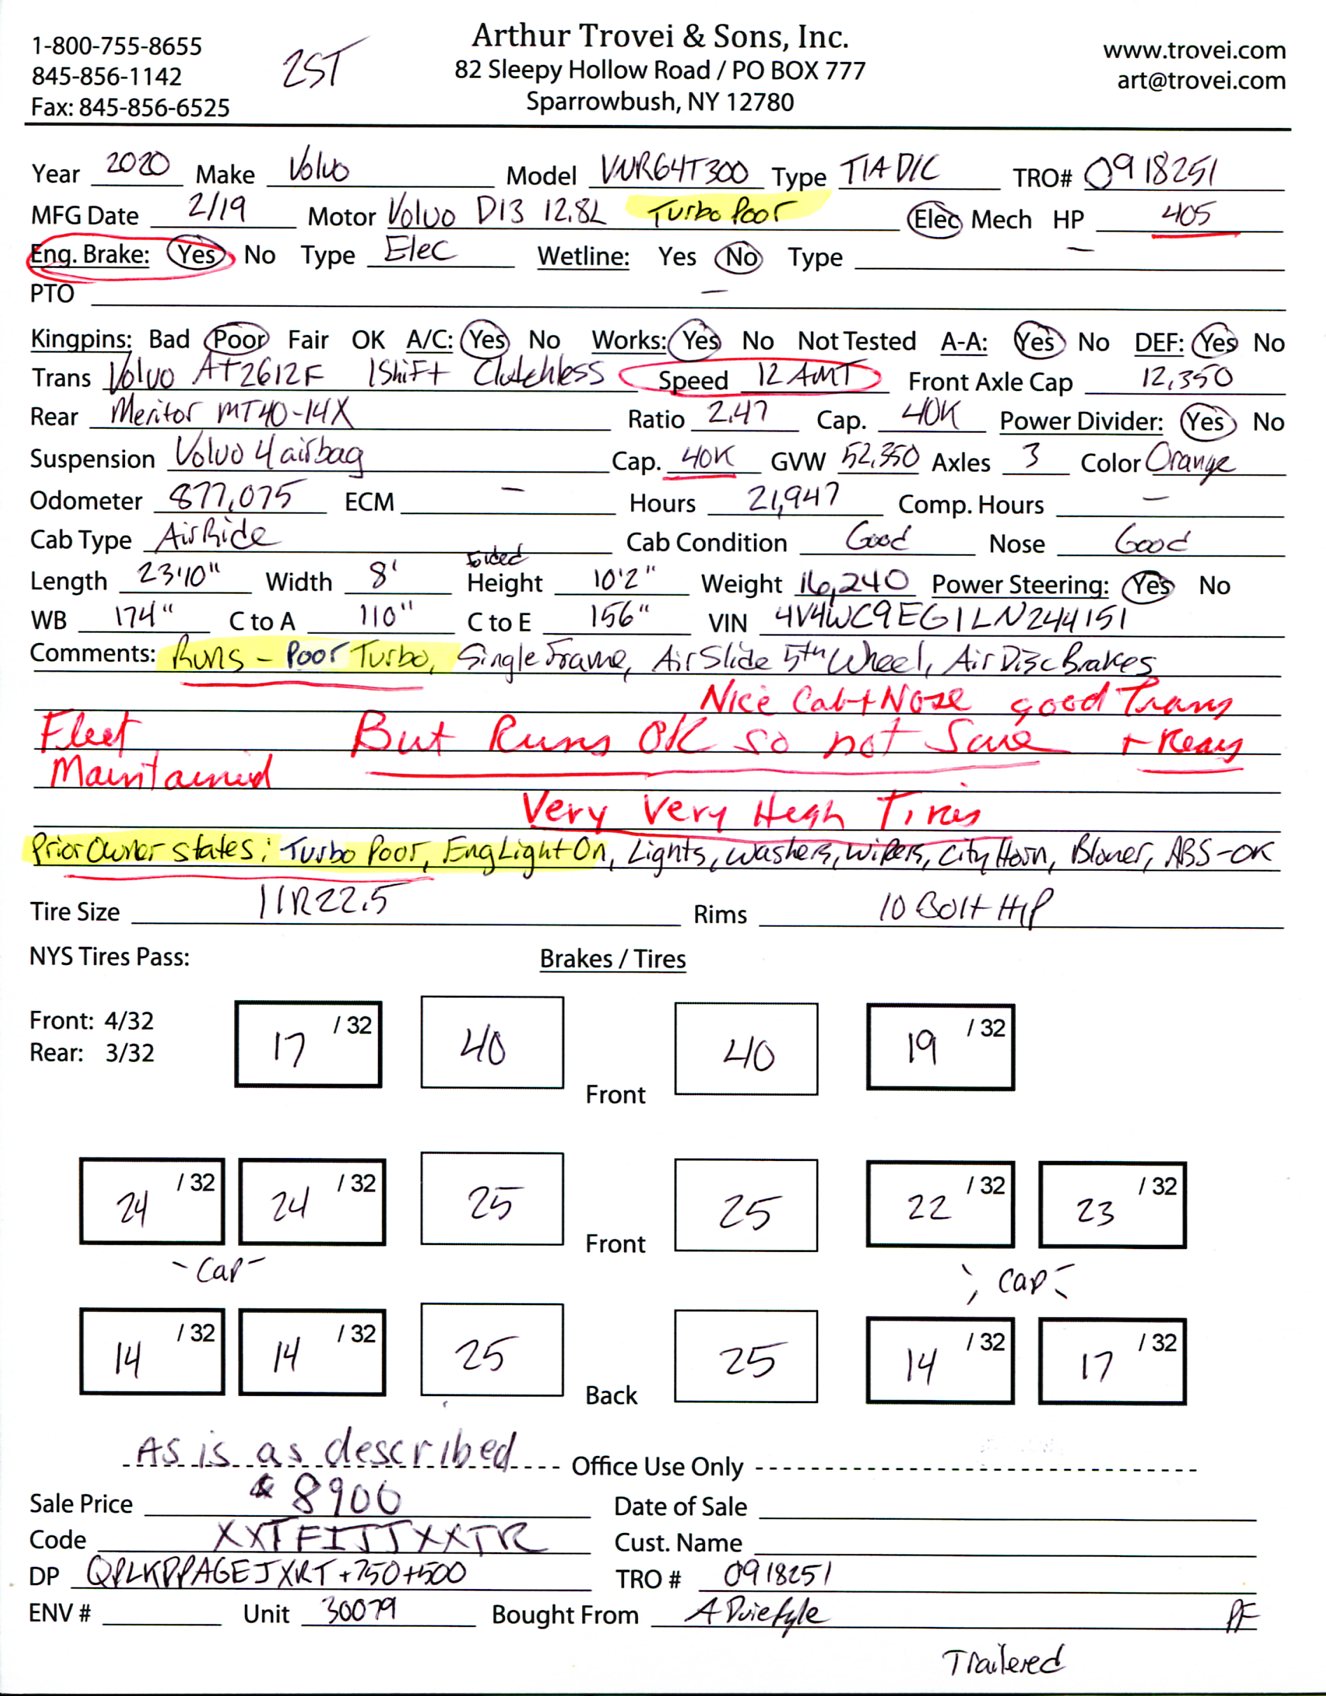 1-800-755-8655
845-856-1142
Fax: 845-856-6525
2ST
Arthur Trovei & Sons, Inc.
82 Sleepy Hollow Road / PO BOX 777
Sparrowbush, NY 12780
www.trovei.com
art@trovei.com
Year 2020 Make Volvo Model VNR64T300 Type T/A D/C TRO# 0918251
MFG Date 2/19 Motor Volvo D13 12.8L Turbo Poor Elec Mech HP 405
Eng. Brake: Yes No Type Elec Wetline: Yes No Type —
PTO —
Kingpins: Bad Poor Fair OK A/C: Yes No Works: Yes No Not Tested A-A: Yes No DEF: Yes No
Trans Volvo AT2612F IShift Clutchless Speed 12 AMT Front Axle Cap 12,350
Rear Meritor MT40-14X Ratio 2.47 Cap. 40K Power Divider: Yes No
Suspension Volvo 4 airbag Cap. 40K GVW 52,350 Axles 3 Color Orange
Odometer 877,075 ECM — Hours 21,947 Comp. Hours —
Cab Type AirRide Cab Condition Good Nose Good
Length 23'10" Width 8' Height 10'2" Weight 16,240 Power Steering: Yes No
WB 174" C to A 110" C to E 156" VIN 4V4WC9EG1LN244151
Comments: Runs - Poor Turbo, Single Frame, AirSlide 5th Wheel, Air Disc Brakes
Nice Cab + Nose good Trans
Fleet But Runs OK so not Sure + Rears
Maintained
Very Very High Tires
Prior Owner states: Turbo Poor, Eng Light On, Lights, Washers, Wipers, City Horn, Blower, ABS-OK
Tire Size 11R22.5 Rims 10 Bolt H/P
NYS Tires Pass: Brakes / Tires
Front: 4/32
Rear: 3/32
17 /32 40 Front 40 19 /32
24 /32 24 /32 25 Front 25 22 /32 23 /32
-Cap- Cap
14 /32 14 /32 25 Back 25 14 /32 17 /32
As is as described Office Use Only
Sale Price $8900 Date of Sale
Code XXTFITTXXTR Cust. Name
DP QPLKPPAGEJXRT+750+500 TRO # 0918251
ENV # Unit 30079 Bought From PF
Trailered